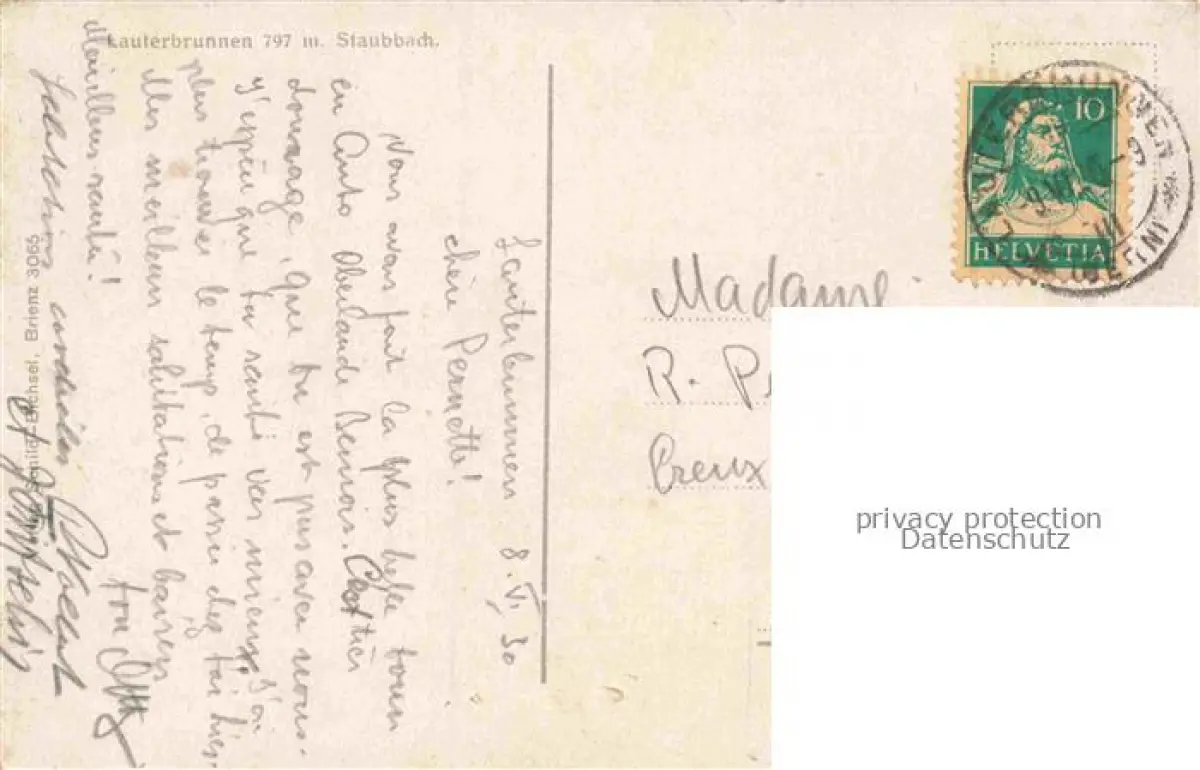 Lauterbrunnen 797 m. Staubbach.
Lauterbrunnen 8.VI.30
chère Pernette!
Nous avons fait la plus belle tour
en Auto Oberlande Bernois. C'est très
domage, que tu est pas avec nous.
J'espère que ta santé vas mieux, j'ai
plus trouver le temps, de passer chez toi hier.
Mes meilleurs salutations et baisers
ton
Meilleur santé!
cordiales
Brienz 3065
HELVETIA
10
LAUTERBRUNNEN
Madame
R. P
Creux
privacy protection
Datenschutz